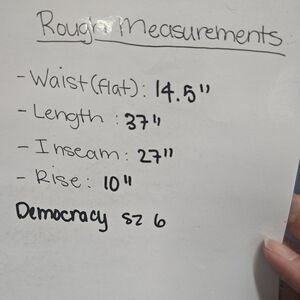 Rough Measurements
- Waist (flat): 14.5"
- Length: 37"
- Inseam: 27"
- Rise: 10"
Democracy sz 6